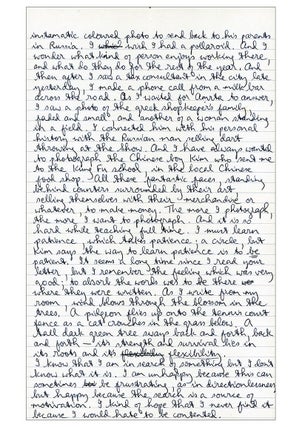 instamatic coloured photo to send back to his parents
in Russia. I wish I had a polleroid. And I
wonder what kind of person enjoys working there,
and what do they do for the rest of the year. And
then after I saw a tax consultant in the city late
yesterday, I made a phone call from a milk bar
across the road. As I waited for Anita to answer,
I saw a photo of the Greek shopkeepers family,
faded and small, and another of a woman standing
in a field. I connected him with his personal
history with the Russian man selling dart
throwing at the Show. And I have always wanted
to photograph the Chinese boy Kim who sent me
to the Kung Fu school, in the local Chinese
food shop - All these fantastic faces, standing
behind counters surrounded by their art
selling themselves with their merchandise or
whatever, to make money. The more I photograph,
the more I want to photograph. And it is so
hard while teaching full time. I must learn
patience, which takes patience; a circle, but
Kim says the way to learn patience is to be
patient. It seems a long time since I read your
letter, but I remember the feeling which was very
good; to absorb the words was to be there
where they were written. As I write from my
room, wind blows through the blossom in the
trees. A pidgeon flies up onto the tennis court
fence as a cat crouches in the grass below. A
tall dark green tree sways back and forth, back
and forth - its strength and survival lies in
its roots and its flexibility.
I know that I am in search of something but I don't
know what it is. I am unhappy because this can
sometimes be frustrating, as in directionlessness
but happy because the search is a source of
motivation. I kind of hope that I never find it
because I would hate to be contented.